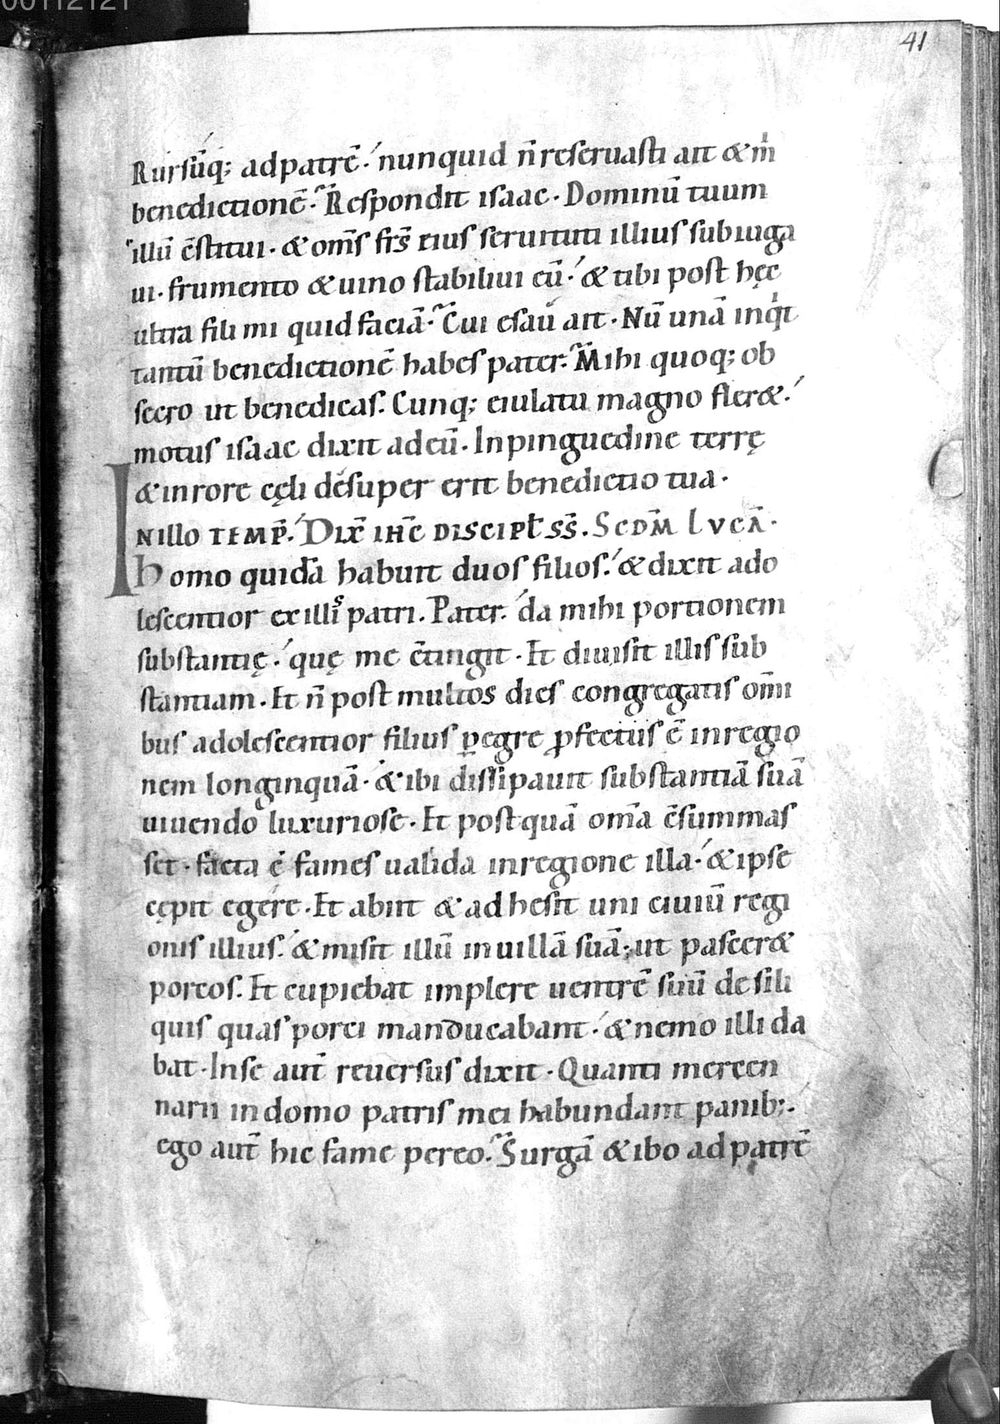 00112121
41
Rursūq; ad patrē. nunquid n̄ reseruasti ait & m̄
benedictionē. Respondit isaac. Dominū tuum
illū c̄stitui. & om̄s fr̄s eius seruituti illius subiuga
ui. frumento & uino stabiliui eū. & tibi post hęc
ultra fili mi quid faciā. Cui esau ait. Nū unā inqit
tantū benedictionē habes pater. Mihi quoq; ob
secro ut benedicas. Cunq; eiulatu magno fler&.
motus isaac dixit ad eū. In pinguedine terrę
& in rore cęli desuper erit benedictio tua.
IN ILLO TEMP̄. DIX̄ IHC̄ DISCIPƚ SS̄. SCDM̄ LVCĀ.
Homo quidā habuit duos filios. & dixit ado
lescentior ex illis patri. Pater. da mihi portionem
substantię. quę me c̄tingit. Et diuisit illis sub
stantiam. Et n̄ post multos dies congregatis om̄i
bus adolescentior filius ꝑegre ꝓfectus ē in regio
nem longinquā. & ibi dissipauit substantiā suā
uiuendo luxuriose. Et postquā om̄a c̄summas
set. facta ē fames ualida in regione illa. & ipse
cępit egere. Et abiit & adhesit uni ciuiū regi
onis illius. & misit illū in uillā suā; ut pascer&
porcos. Et cupiebat implere uentrē suū de sili
quis quas porci manducabant. & nemo illi da
bat. In se aut̄ reuersus dixit. Quanti mercen
narii in domo patris mei habundant panib;.
ego aut̄ hic fame pereo. Surgā & ibo ad patrē